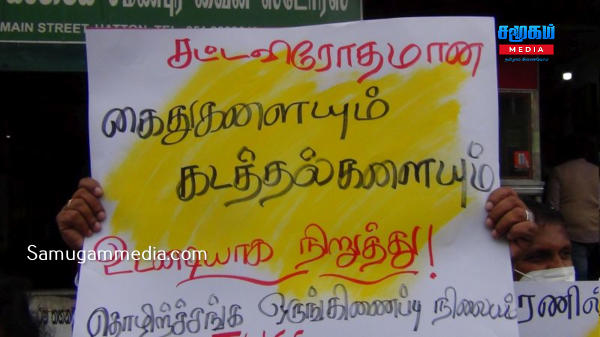 MAIN STREET HATTON, TEL
சமூகம்
MEDIA
சட்டவிரோதமான
கைதுகளையும்
கடத்தல்களையும்
உடனடியாக நிறுத்து!
Samugammedia.com
தொழிற்சங்க ஒருங்கிணைப்பு நிலையம்
ரணில்